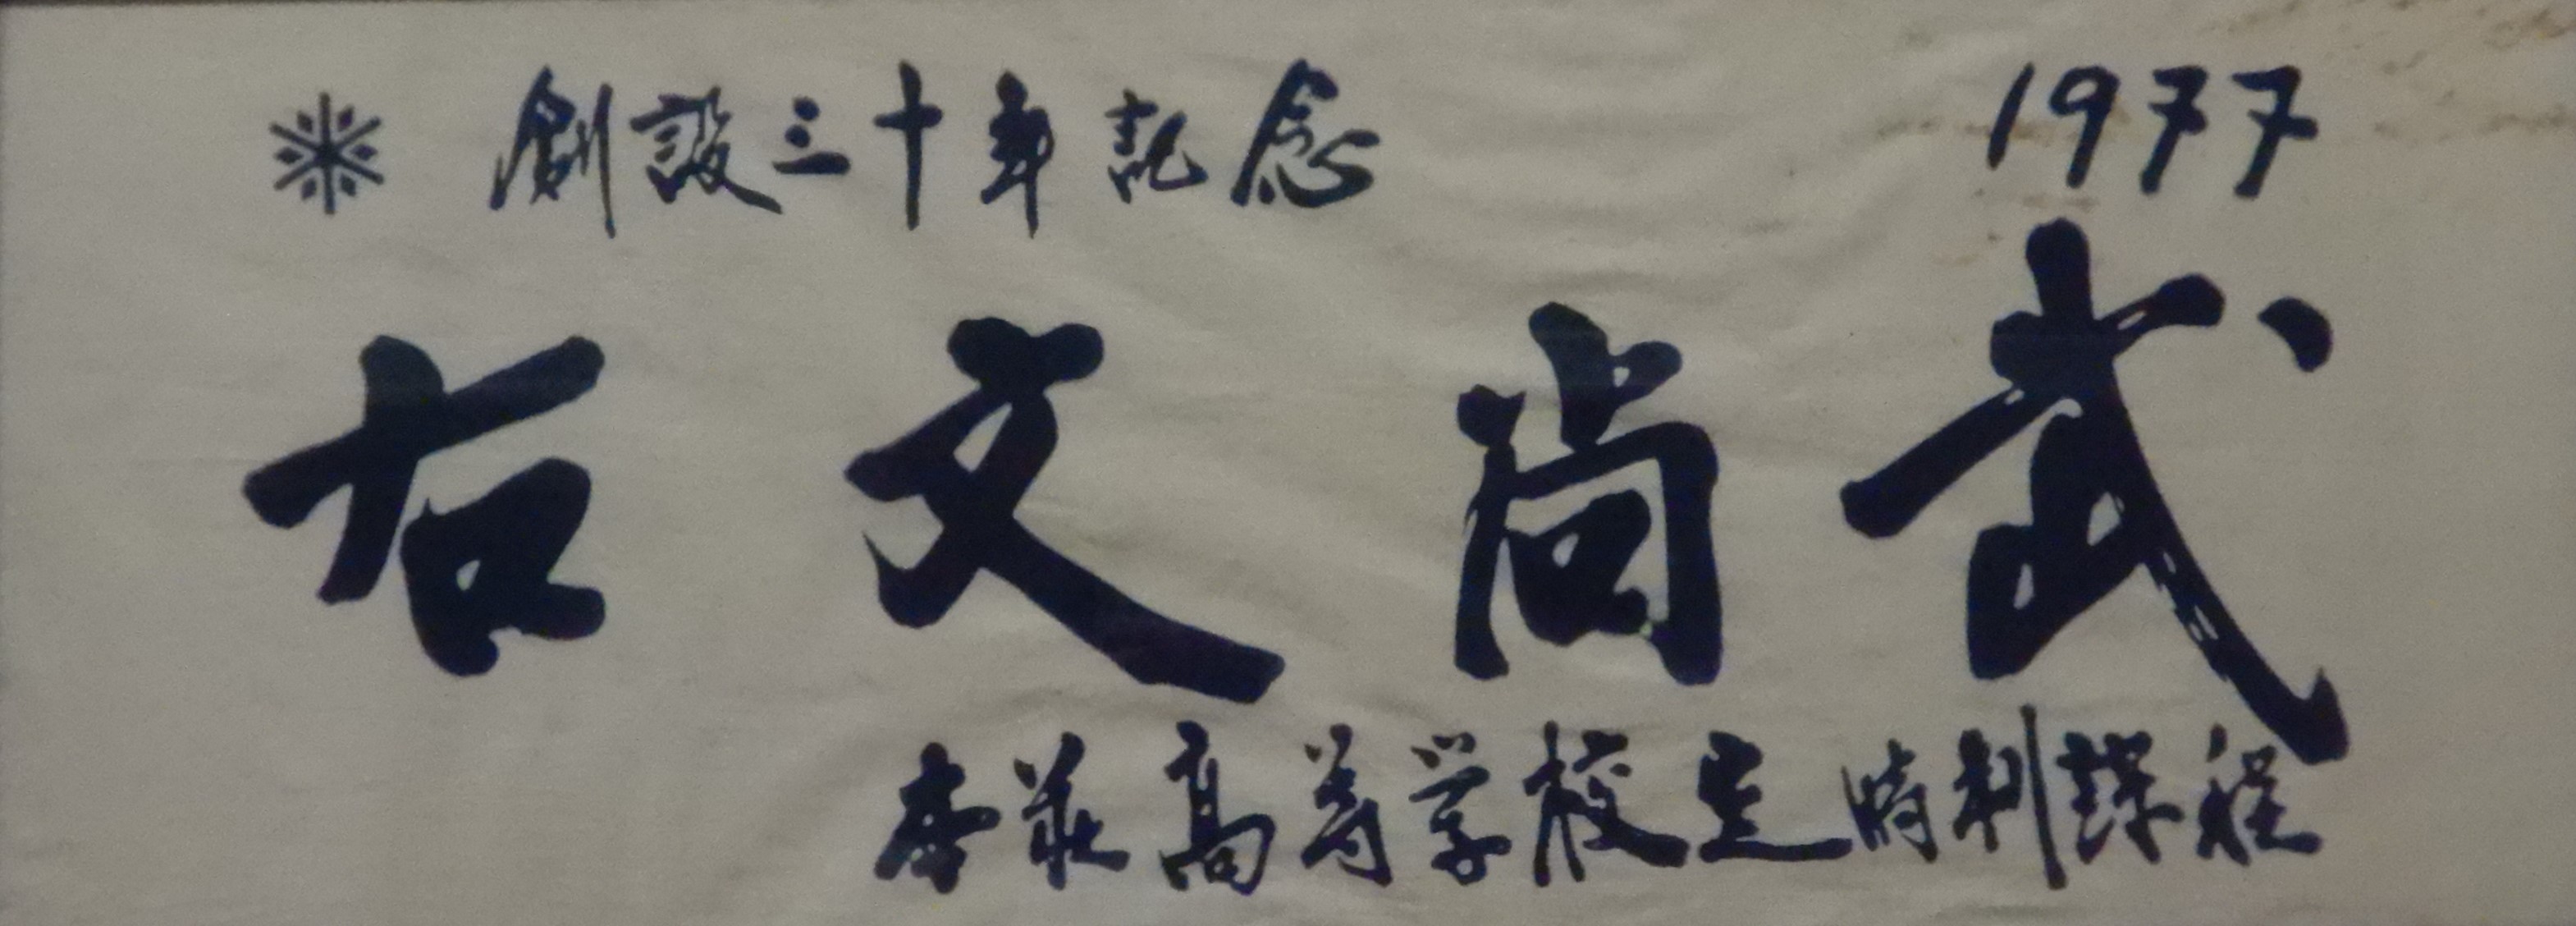 創設三十年記念 1977
右文尚武
本荘高等学校定時制課程